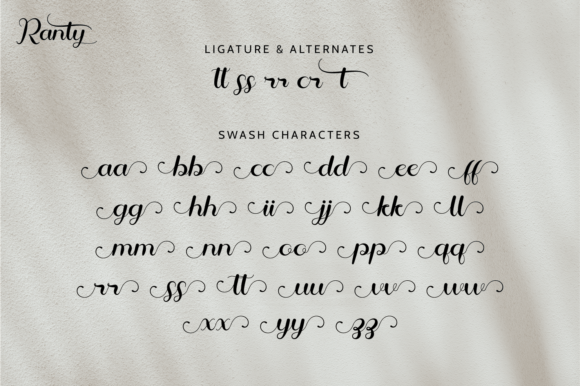 Ranty
LIGATURE & ALTERNATES
tt ss rr cr t
SWASH CHARACTERS
aa bb cc dd ee ff
gg hh ii jj kk ll
mm nn oo pp qq
rr ss tt uu vv ww
xx yy zz